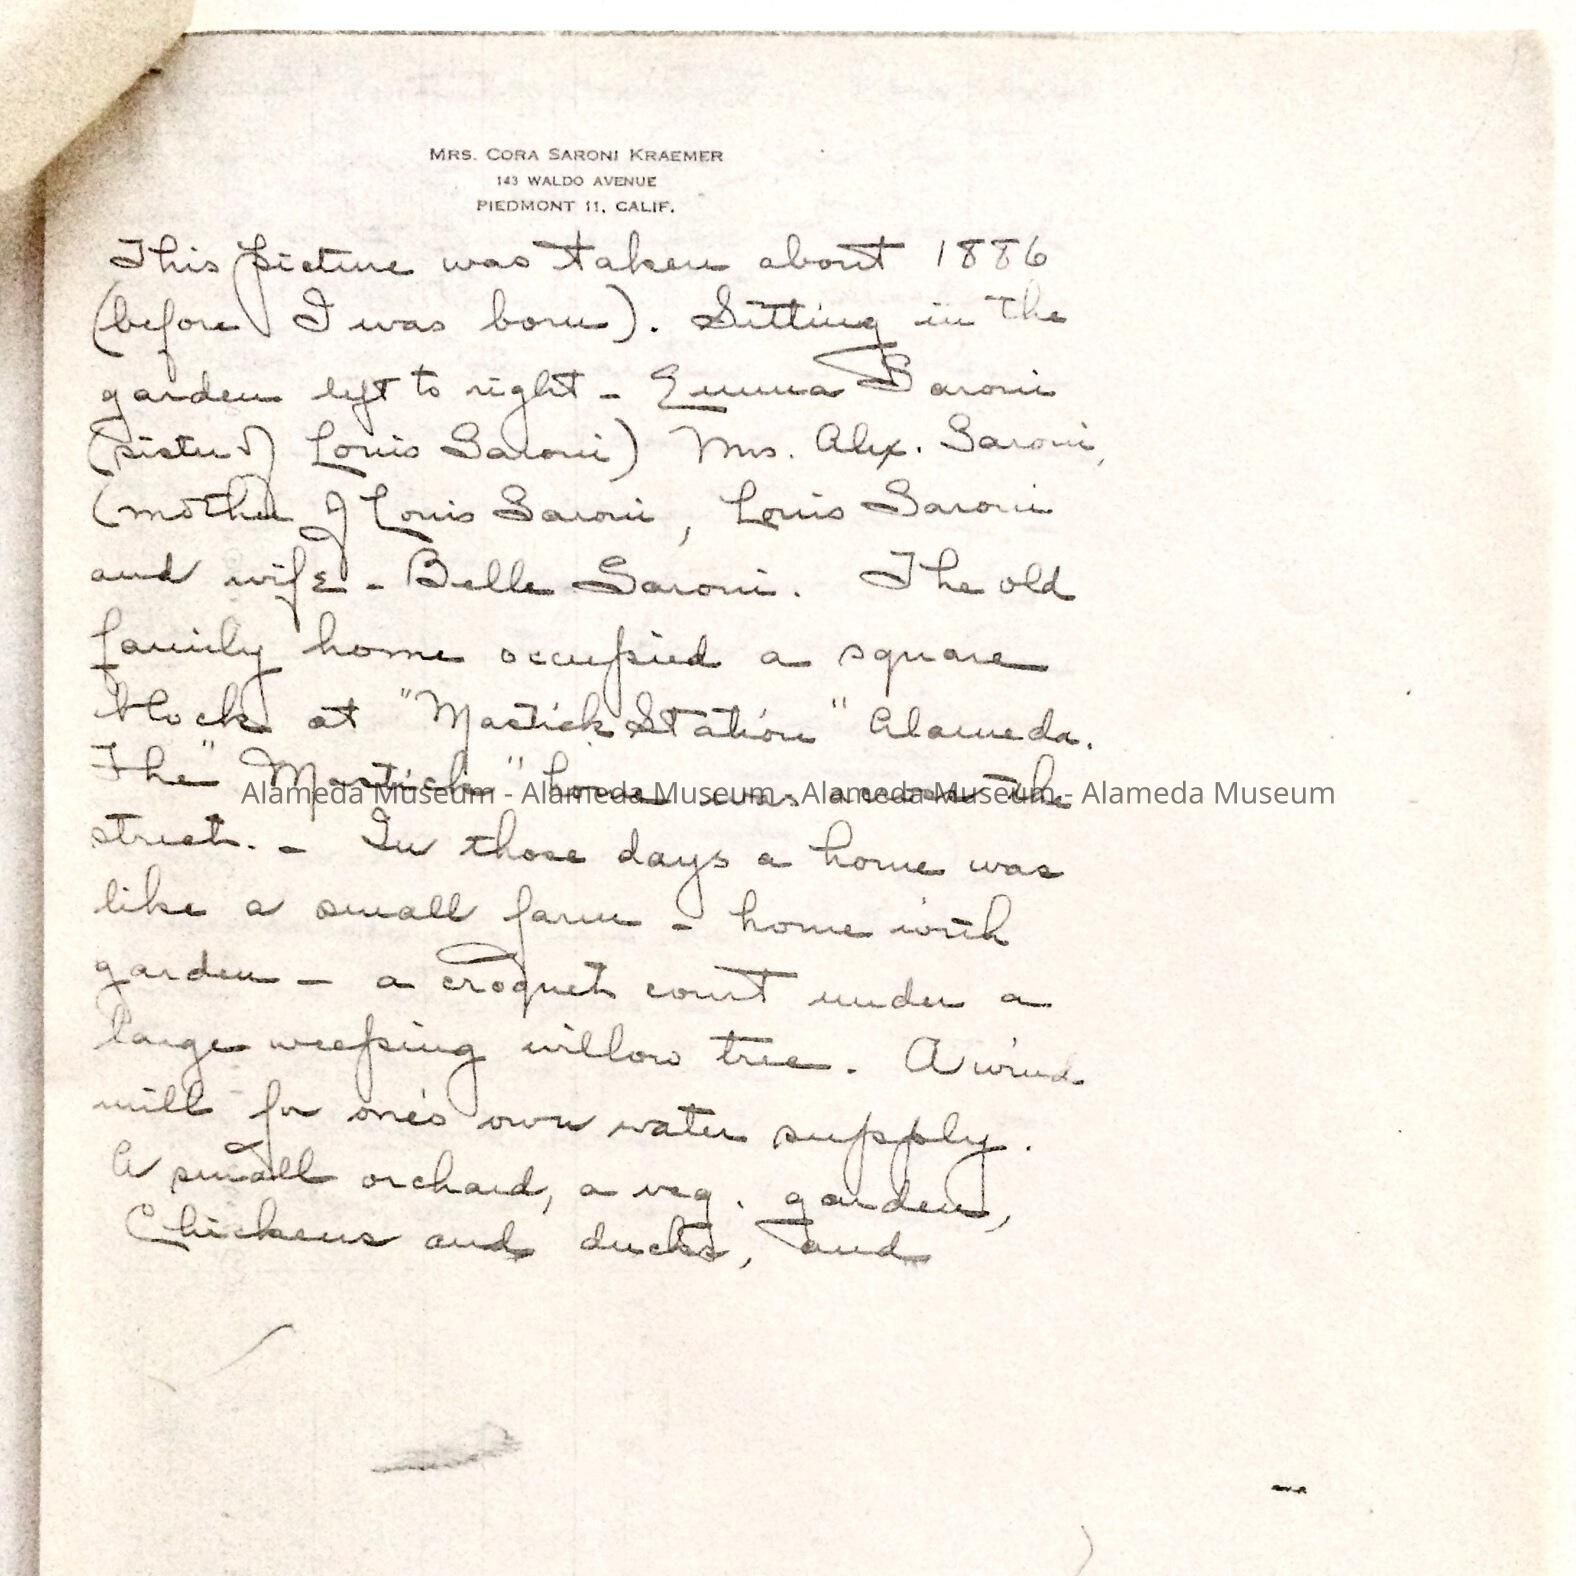 MRS. CORA SARONI KRAEMER
143 WALDO AVENUE
PIEDMONT 11, CALIF.
This picture was taken about 1886
(before I was born). Sitting in the
garden left to right - Emma Saroni
(sister of Louis Saroni) Mrs. Alex. Saroni,
(mother of Louis Saroni, Louis Saroni
and wife - Belle Saroni. The old
family home occupied a square
block at "Mastick Station" Alameda.
The "Mastick" home was across the
Alameda Museum - Alameda Museum - Alameda Museum - Alameda Museum
street. - In those days a home was
like a small farm - home with
garden - a croquet court under a
large weeping willow tree. A wind
mill - for one's own water supply.
A small orchard, a veg. garden,
Chickens and ducks, and